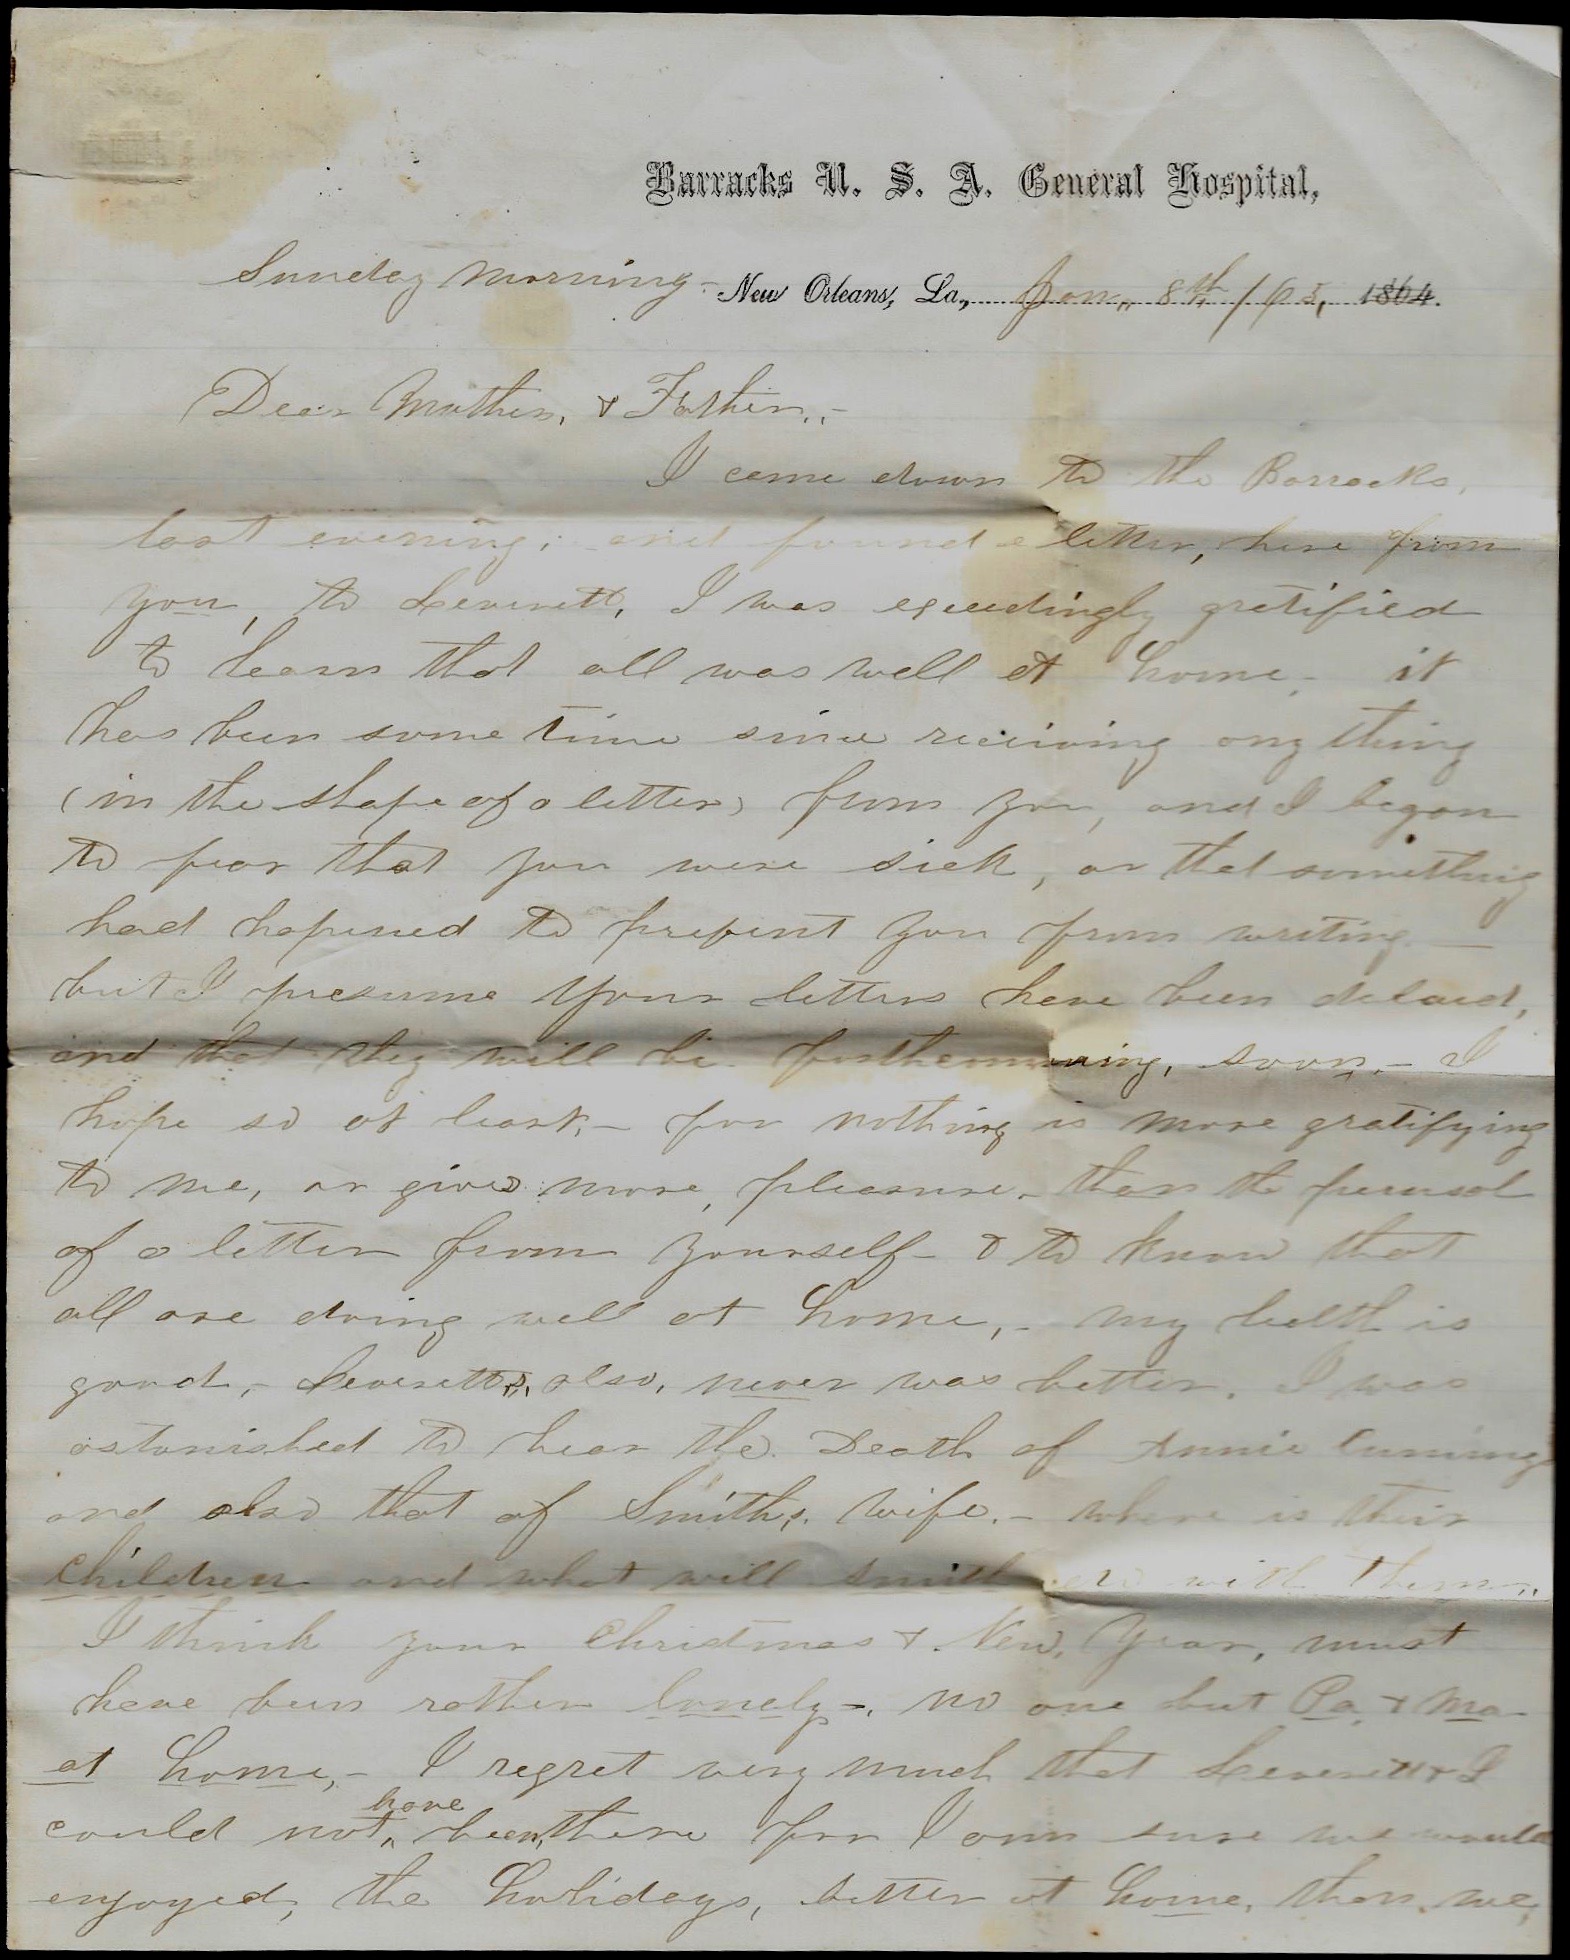 Barracks U. S. A. General Hospital,
Sunday Morning - New Orleans, La., Jan,, 8th /65, 1864.
Dear Mother, & Father,,-
I came down to the Barracks,
last evening, and found a letter, here from
you, to Leverett, I was exceedingly gratified
to learn that all was well at home,- it
has been some time since receiving any thing
(in the shape of a letter) from you, and I began
to fear that you were sick, or that something
had hapened to prefent you from writing -
but I presume your letters have been delaid,
and that they will be forthcomming, soon,- I
hope so at least,- for nothing is more gratifying
to me, or gives more, pleasure,- than the perusal
of a letter from yourself- & to know that
all are doing well at home,- my health is
good,- Leveretts, also, never was better. I was
astonished to hear the Death of Annie Cuming
and also that of Smith,s. wife.- where is their
children and what will Smith do with them,,
I think your Christmas & New, Year, must
have been rather lonely-, no one but Pa, & Ma-
at home,- I regret very much that Leverett & I
could not have been, there for I am sure we would
enjoyed, the holidays, better at home, than we,